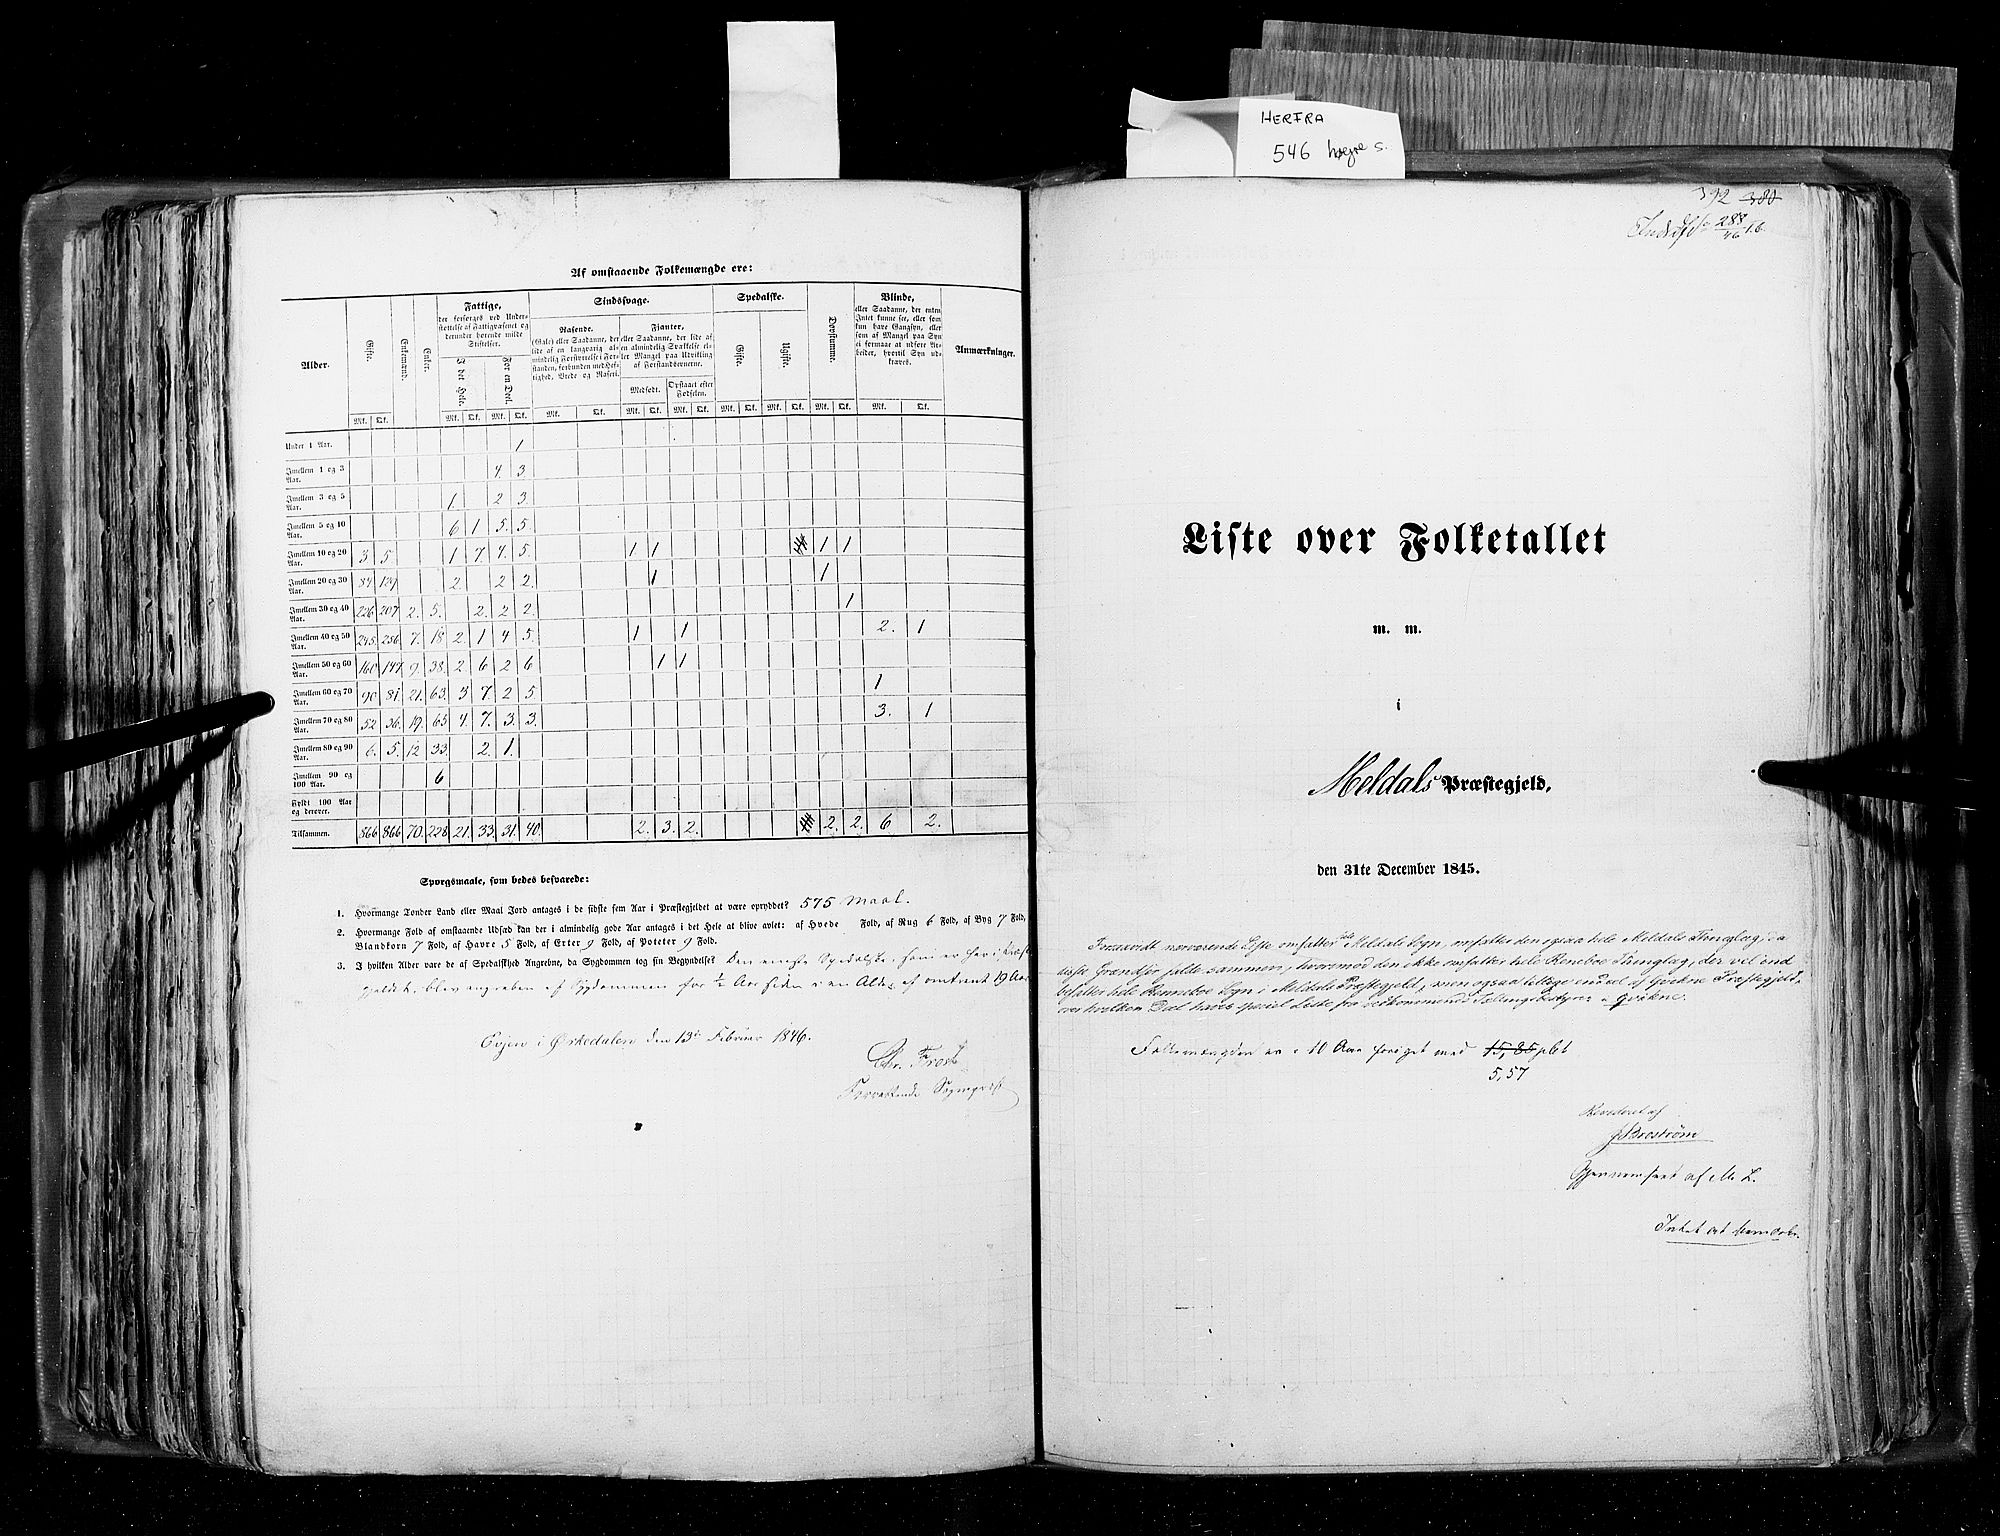 HERFRA
546 høyre s.
Af omstaaende Folkemængde ere:
Alder. Gifte. Enkemænd. Enker. Fattige, der forsørges ved Understøttelse af Fattigvæsenet og derunder hørende milde Stiftelser. Sindssvage. Spedalske. Døvstumme. Blinde, eller Saadanne, der enten Intet kunne see, eller som kun have Gangsyn, eller som af Mangel paa Syn ei formaae at udføre Arbeider, hvortil Syn udkræves. Anmærkninger.
I det Hele. For en Deel. Rasende. (Gale) eller Saadanne, der lide af en langvarig almindelig Forstyrrelse i Forstanden, forbunden med Heftighed, Vrede og Raseri. Fjanter, eller Saadanne, der lide af en almindelig Svækkelse eller Mangel paa Udvikling af Forstandsevnerne. Gifte. Ugifte.
Medfødt. Opstaaet efter Fødselen.
Mk. Qk. Mk. Qk. Mk. Qk. Mk. Qk. Mk. Qk. Mk. Qk. Mk. Qk. Mk. Qk. Mk. Qk. Mk. Qk.
Under 1 Aar. 1
Imellem 1 og 3 Aar. 4. 3
Imellem 3 og 5 Aar. 1. 2 3
Imellem 5 og 10 Aar. 6 1 5. 5
Imellem 10 og 20 Aar. 3 5 1 7. 4. 5. 1 1 1 1
Imellem 20 og 30 Aar. 84. 129 2. 2 2. 1 1
Imellem 30 og 40 Aar. 226 207 2. 5. 2. 2 2. 1
Imellem 40 og 50 Aar. 245. 256. 7. 18 2. 1 4 5. 1 1 2. 1
Imellem 50 og 60 Aar. 160 147. 9 38. 2 6 2 6 1 1
Imellem 60 og 70 Aar. 90 81. 21. 63. 3 7. 2 5. 1
Imellem 70 og 80 Aar. 52 36. 19. 65 4. 7. 3. 3. 3. 1
Imellem 80 og 90 Aar. 6. 5. 12 33. 2. 1.
Imellem 90 og 100 Aar. 6
Fyldt 100 Aar og derover.
Tilsammen. 866 866 70. 228 21. 33. 31. 40. 2. 3. 2. 2. 2. 6 2.
Spørgsmaale, som bedes besvarede:
1. Hvormange Tønder Land eller Maal Jord antages i de sidste fem Aar i Præstegjeldet at være opryddet? 575 Maal.
2. Hvormange Fold af omstaaende Udsæd kan der i almindelig gode Aar antages i det Hele at blive avlet: af Hvede Fold, af Rug 6 Fold, af Byg 7 Fold,
Blandkorn 7 Fold, af Havre 5 Fold, af Erter 9 Fold, af Poteter 9 Fold.
3. I hvilken Alder vare de af Spedalskhed Angrebne, da Sygdommen tog sin Begyndelse? Den eneste Spedalske, som er her i Præste
gjeldet, blev angreben af Sygdommen for ½ Aar siden i en Alder af omtrent 19 Aar
Evjen i Ørkedalen den 13de Februar 1846.
Chr. Frost
Sognepræst
392 380
288
46
Liste over Folketallet
m. m.
i
Meldals Præstegjeld,
den 31te December 1845.
Forsaavidt nærværende Liste omfatter hele Meldals Sogn, omfatter den ogsaa hele Meldals Thinglag, da
disse Grændser falde sammen, hvorimod den ikke omfatter hele Renneboe Thinglag, der vel ind
befatter hele Renneboe Sogn i Meldals Præstegjeld, men ogsaa tillige endeel af Qvikne Præstegjeld,
over hvilken Deel haves special Liste fra vedkommende Tællingsbestyrer i Qvikne.
Folkemængden er i 10 Aar forøget med 15,85 pCt
5,57
Revideret af
Gjennemseet af M. L.
Intet at bemærke.